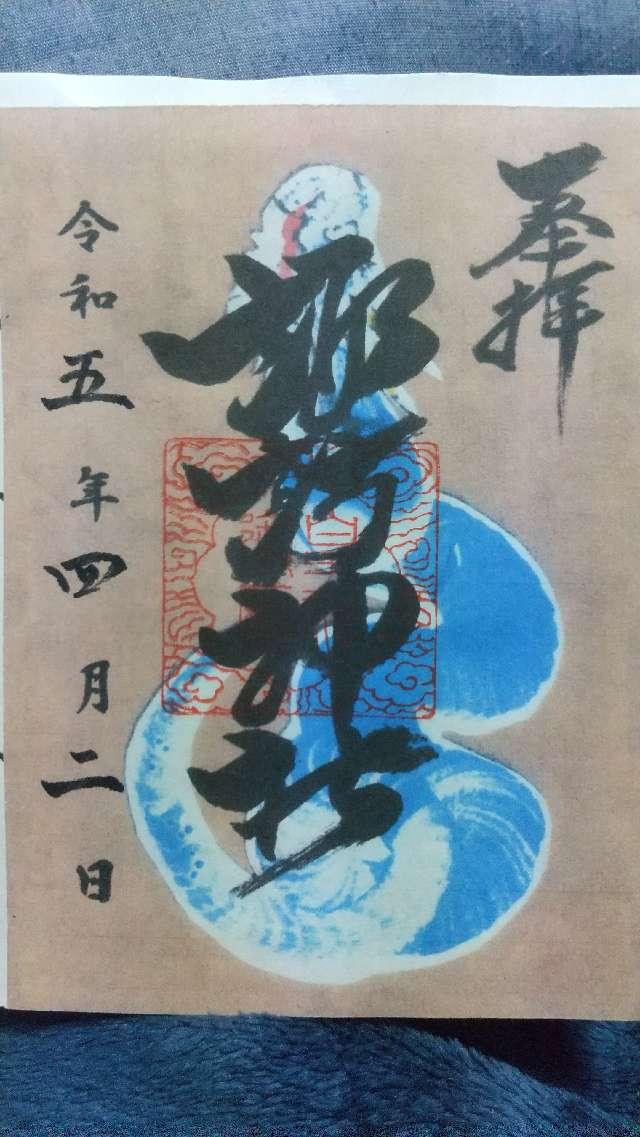 奉拝
神社
令和五年四月二日